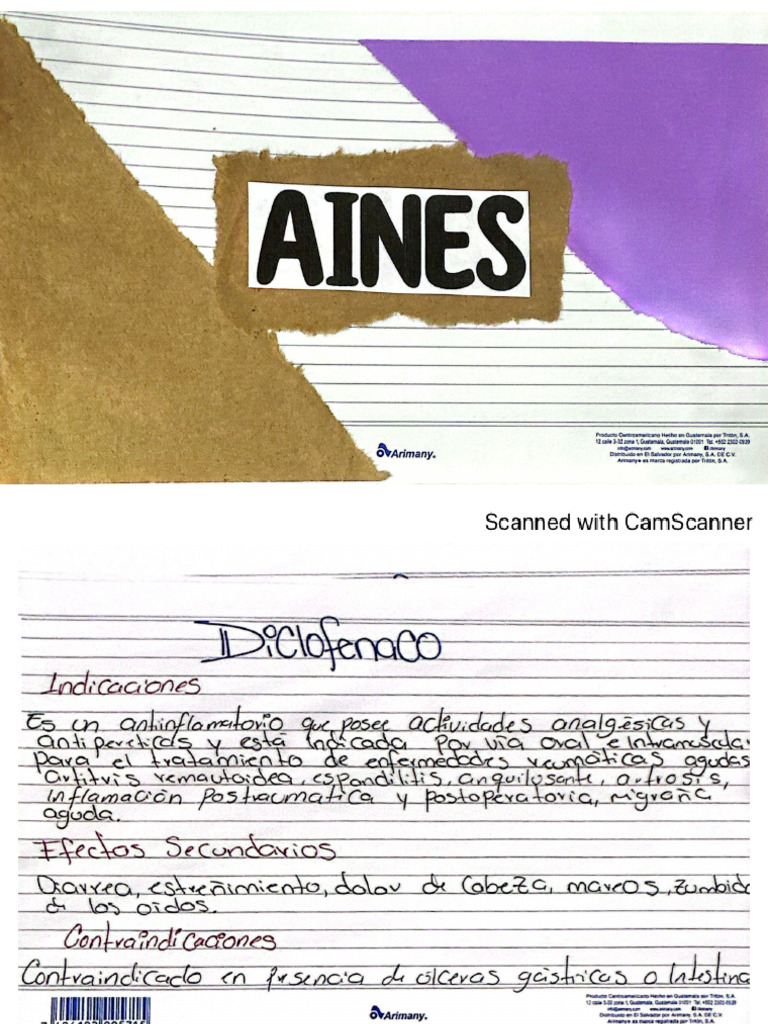 AINES
Arimany.
Producto Centroamericano Hecho en Guatemala por Tritón, S.A.
12 calle 3-32 zona 1, Guatemala, Guatemala 01001 Tel. +502 2302-0939
info@arimany.com www.arimany.com arimany
Distribuido en El Salvador por Arimany, S.A. DE C.V.
Arimany® es marca registrada por Tritón, S.A.
Scanned with CamScanner
Diclofenaco
Indicaciones
Es un antiinflamatorio que posee actividades analgésicas y
antiperéticas y está indicada por vía oral e intramuscula
para el tratamiento de enfermedades reumáticas agudas
artitris remautoidea, espondilitis, anquilosante, artrosis,
inflamación postraumatica y postoperatoria, migraña
aguda.
Efectos Secundarios
Diarrea, estreñimiento, dolor de cabeza, mareos, zumbido
de los oídos.
Contraindicaciones
Contraindicado en presencia de úlceras gástricas o Intestina
Arimany.
Producto Centroamericano Hecho en Guatemala por Tritón, S.A.
12 calle 3-32 zona 1, Guatemala, Guatemala 01001 Tel. +502 2302-0939
info@arimany.com www.arimany.com arimany
Distribuido en El Salvador por Arimany, S.A. DE C.V.
Arimany® es marca registrada por Tritón, S.A.